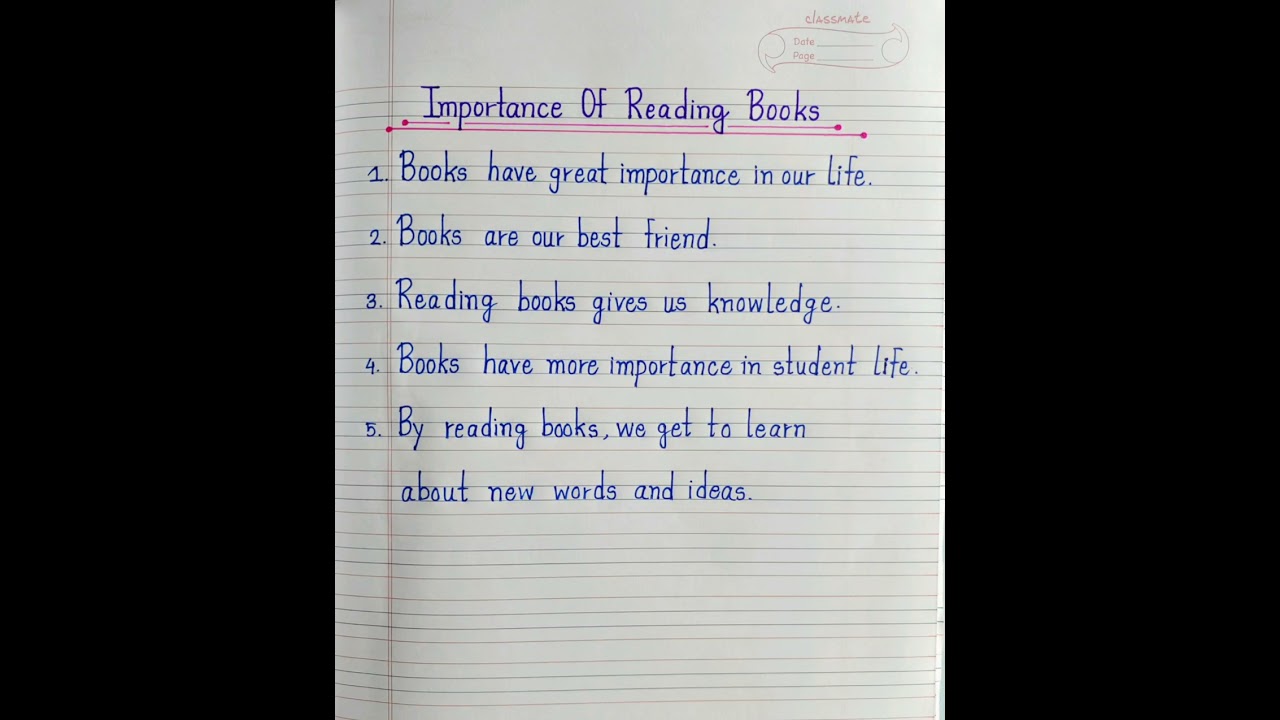 classmate
Date
Page
Importance Of Reading Books
1. Books have great importance in our life.
2. Books are our best friend.
3. Reading books gives us knowledge.
4. Books have more importance in student life.
5. By reading books, we get to learn
about new words and ideas.